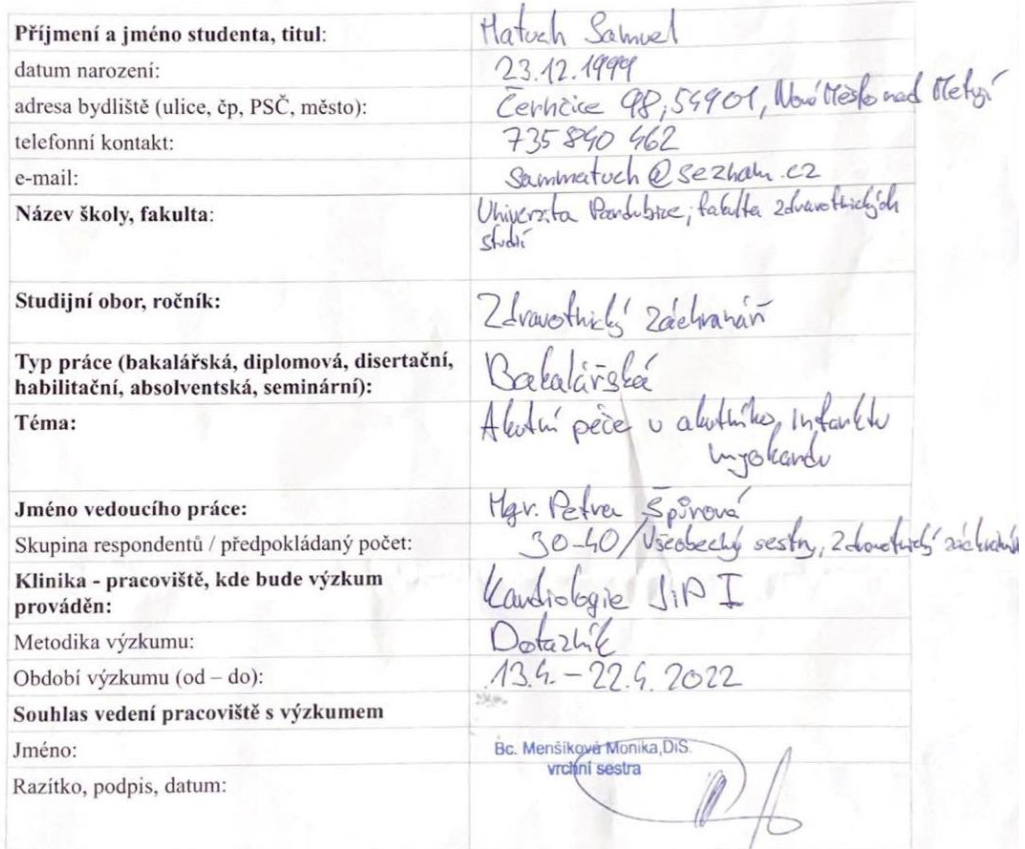 Příjmení a jméno studenta, titul: Matuch Samuel
datum narození: 23.12.1999
adresa bydliště (ulice, čp, PSČ, město): Černčice 98, 54901, Nové Město nad Metují
telefonní kontakt: 735 840 462
e-mail: sammatuch@seznam.cz
Název školy, fakulta: Univerzita Pardubice, fakulta zdravotnických
studií
Studijní obor, ročník: Zdravotnický záchranář
Typ práce (bakalářská, diplomová, disertační,
habilitační, absolventská, seminární): Bakalářská
Téma: Akutní péče u akutního infarktu
myokardu
Jméno vedoucího práce: Mgr. Petra Špůrová
Skupina respondentů / předpokládaný počet: 30-40/Všeobecný sestry, Zdravotnický záchranář
Klinika - pracoviště, kde bude výzkum
prováděn: Kardiologie JIP I
Metodika výzkumu: Dotazník
Období výzkumu (od – do): 13.4. – 22.4. 2022
Souhlas vedení pracoviště s výzkumem
Jméno: Bc. Menšíková Monika, DiS.
vrchní sestra
Razítko, podpis, datum: